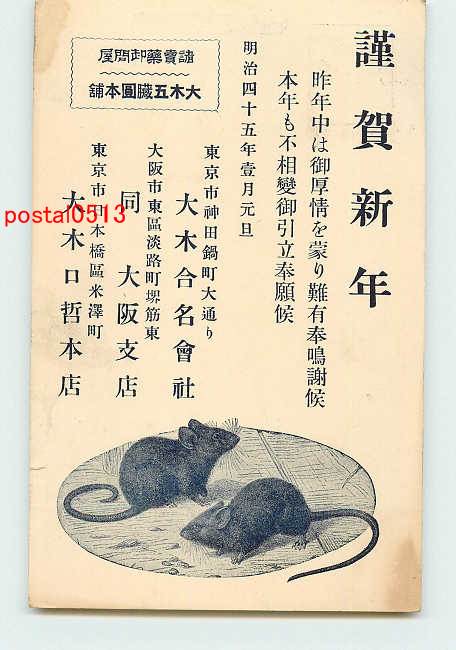 謹賀新年
昨年中は御厚情を蒙り難有奉鳴謝候
本年も不相變御引立奉願候
明治四十五年壹月元旦
諸賣藥卸問屋
大木五臓圓本舗
東京市神田鍋町大通り
大木合名會社
大阪市東區淡路町堺筋東
同 大阪支店
東京市日本橋區米澤町
大木口哲本店
postal0513